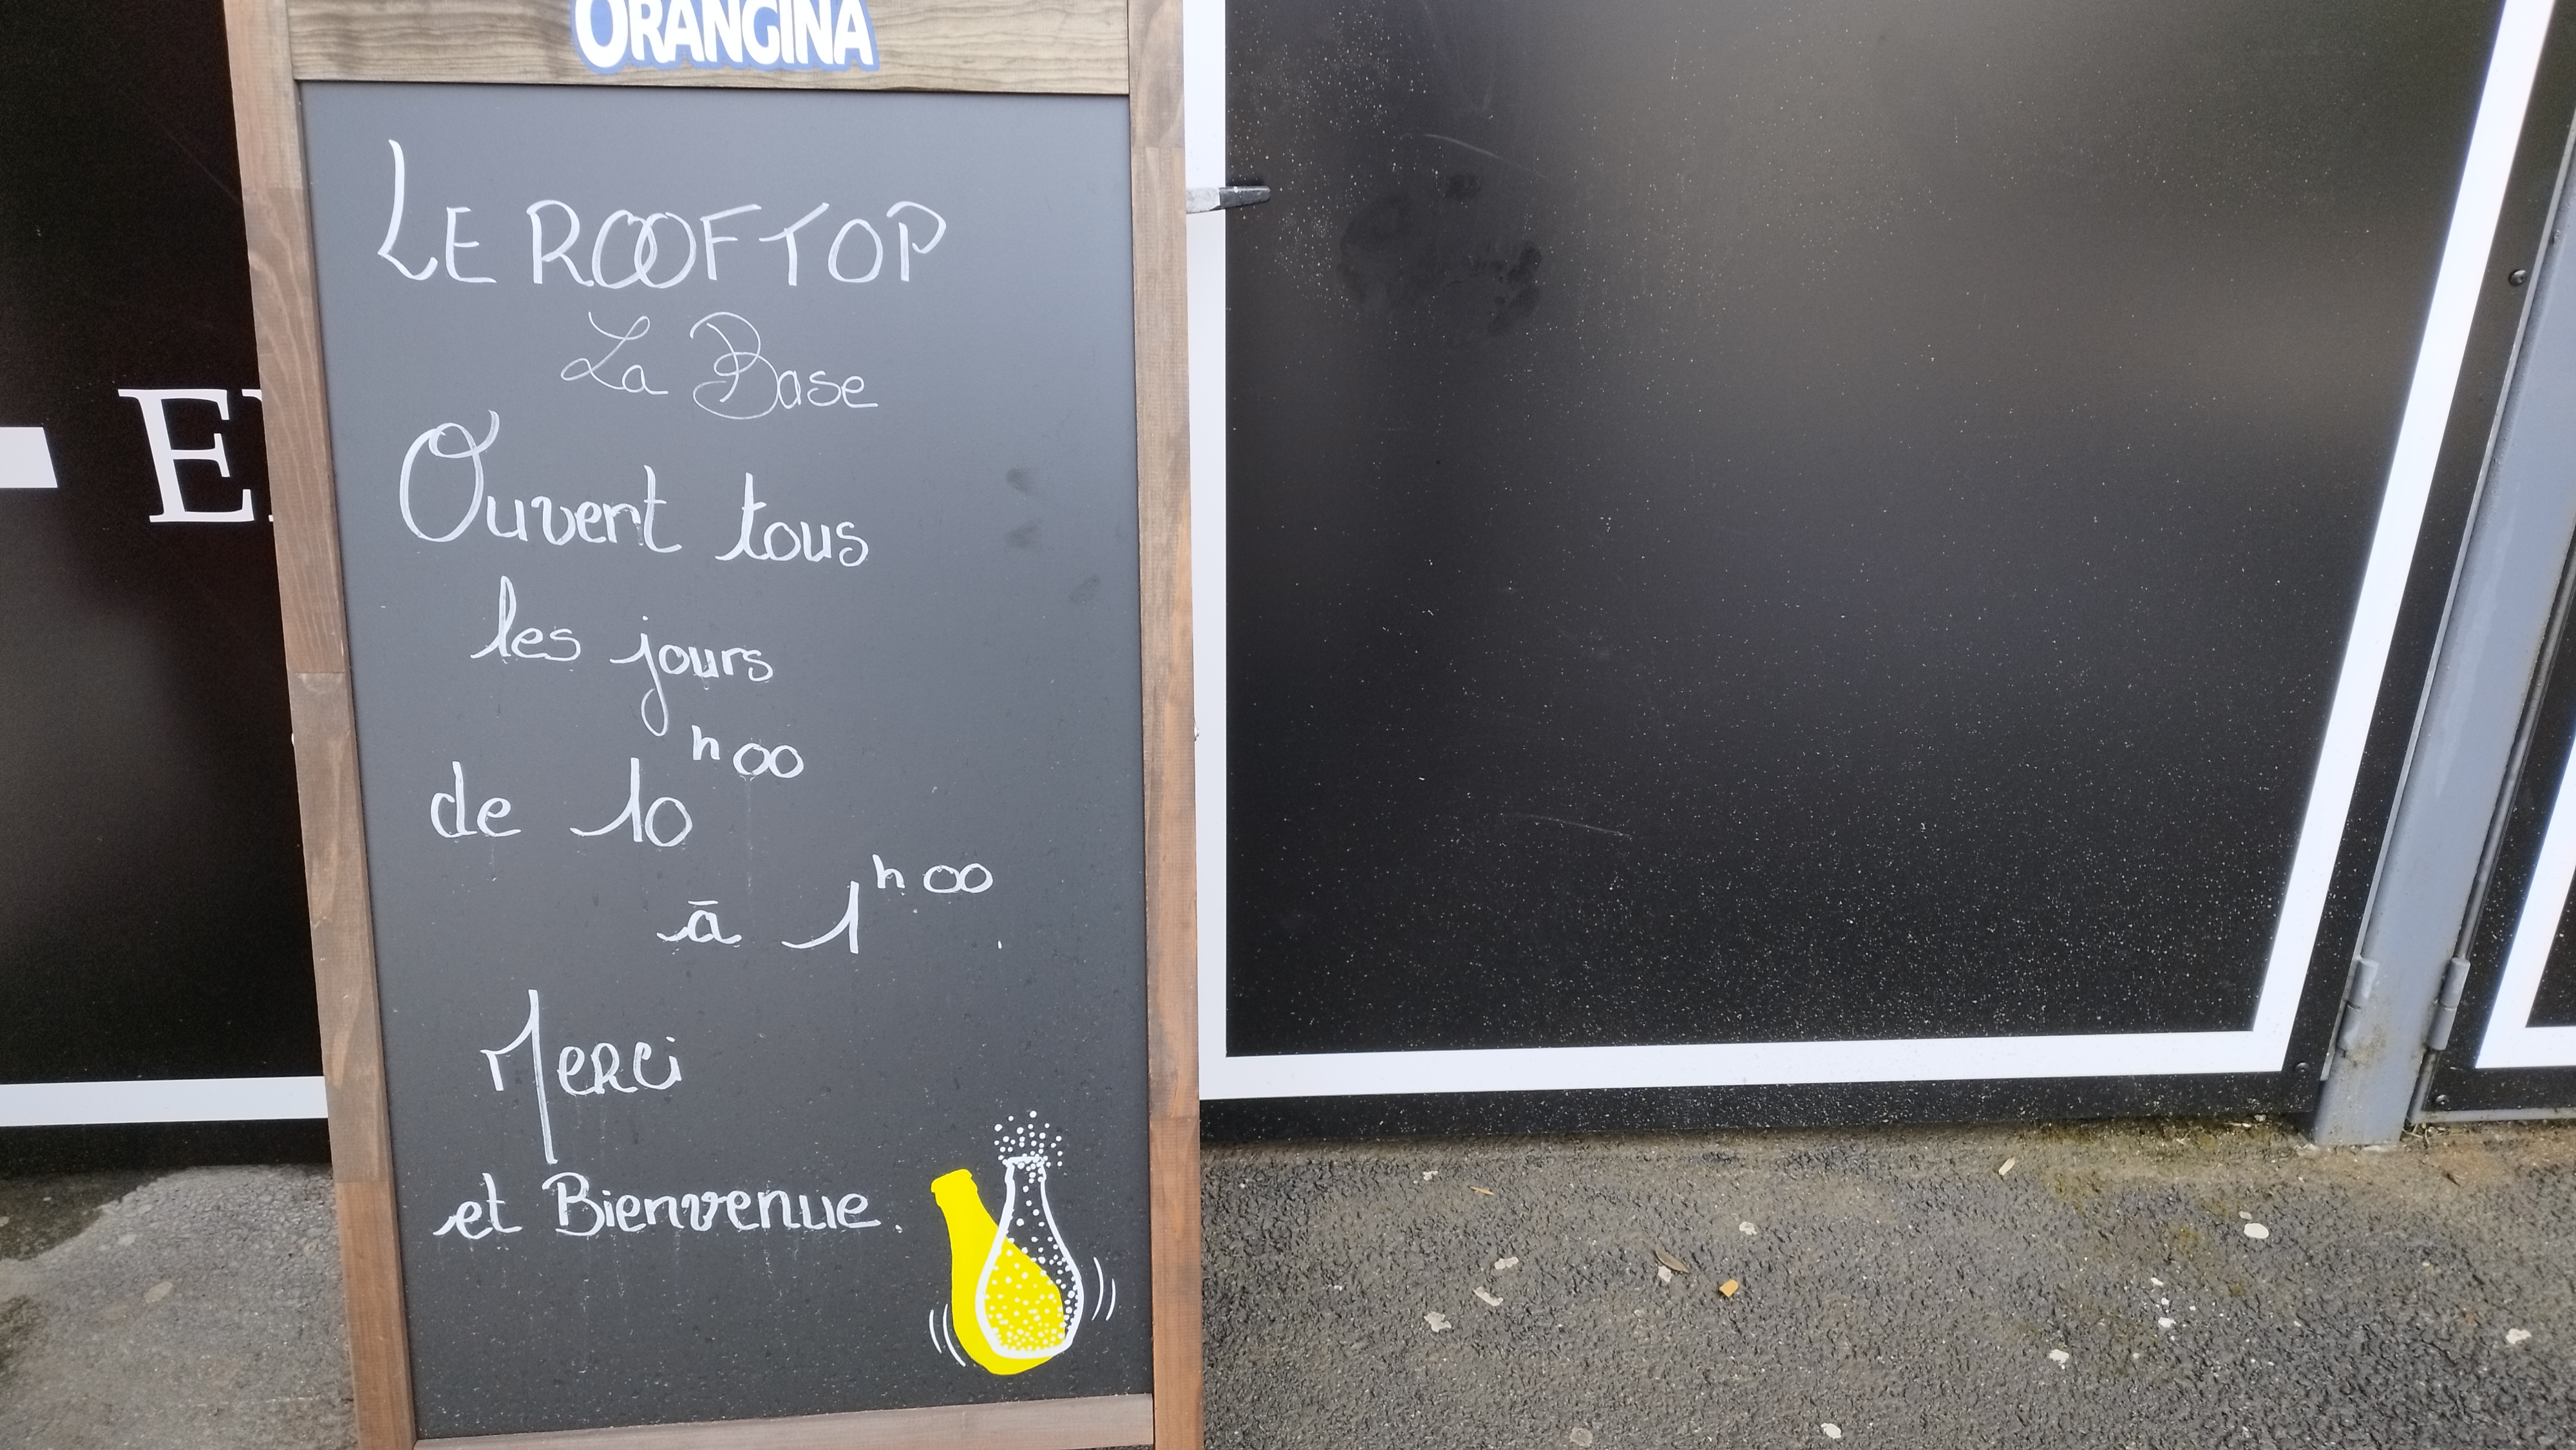 ORANGINA
LE ROOFTOP
La Base
Ouvent tous
les jours
de 10 h 00
à 1 h 00
Merci
et Bienvenue.